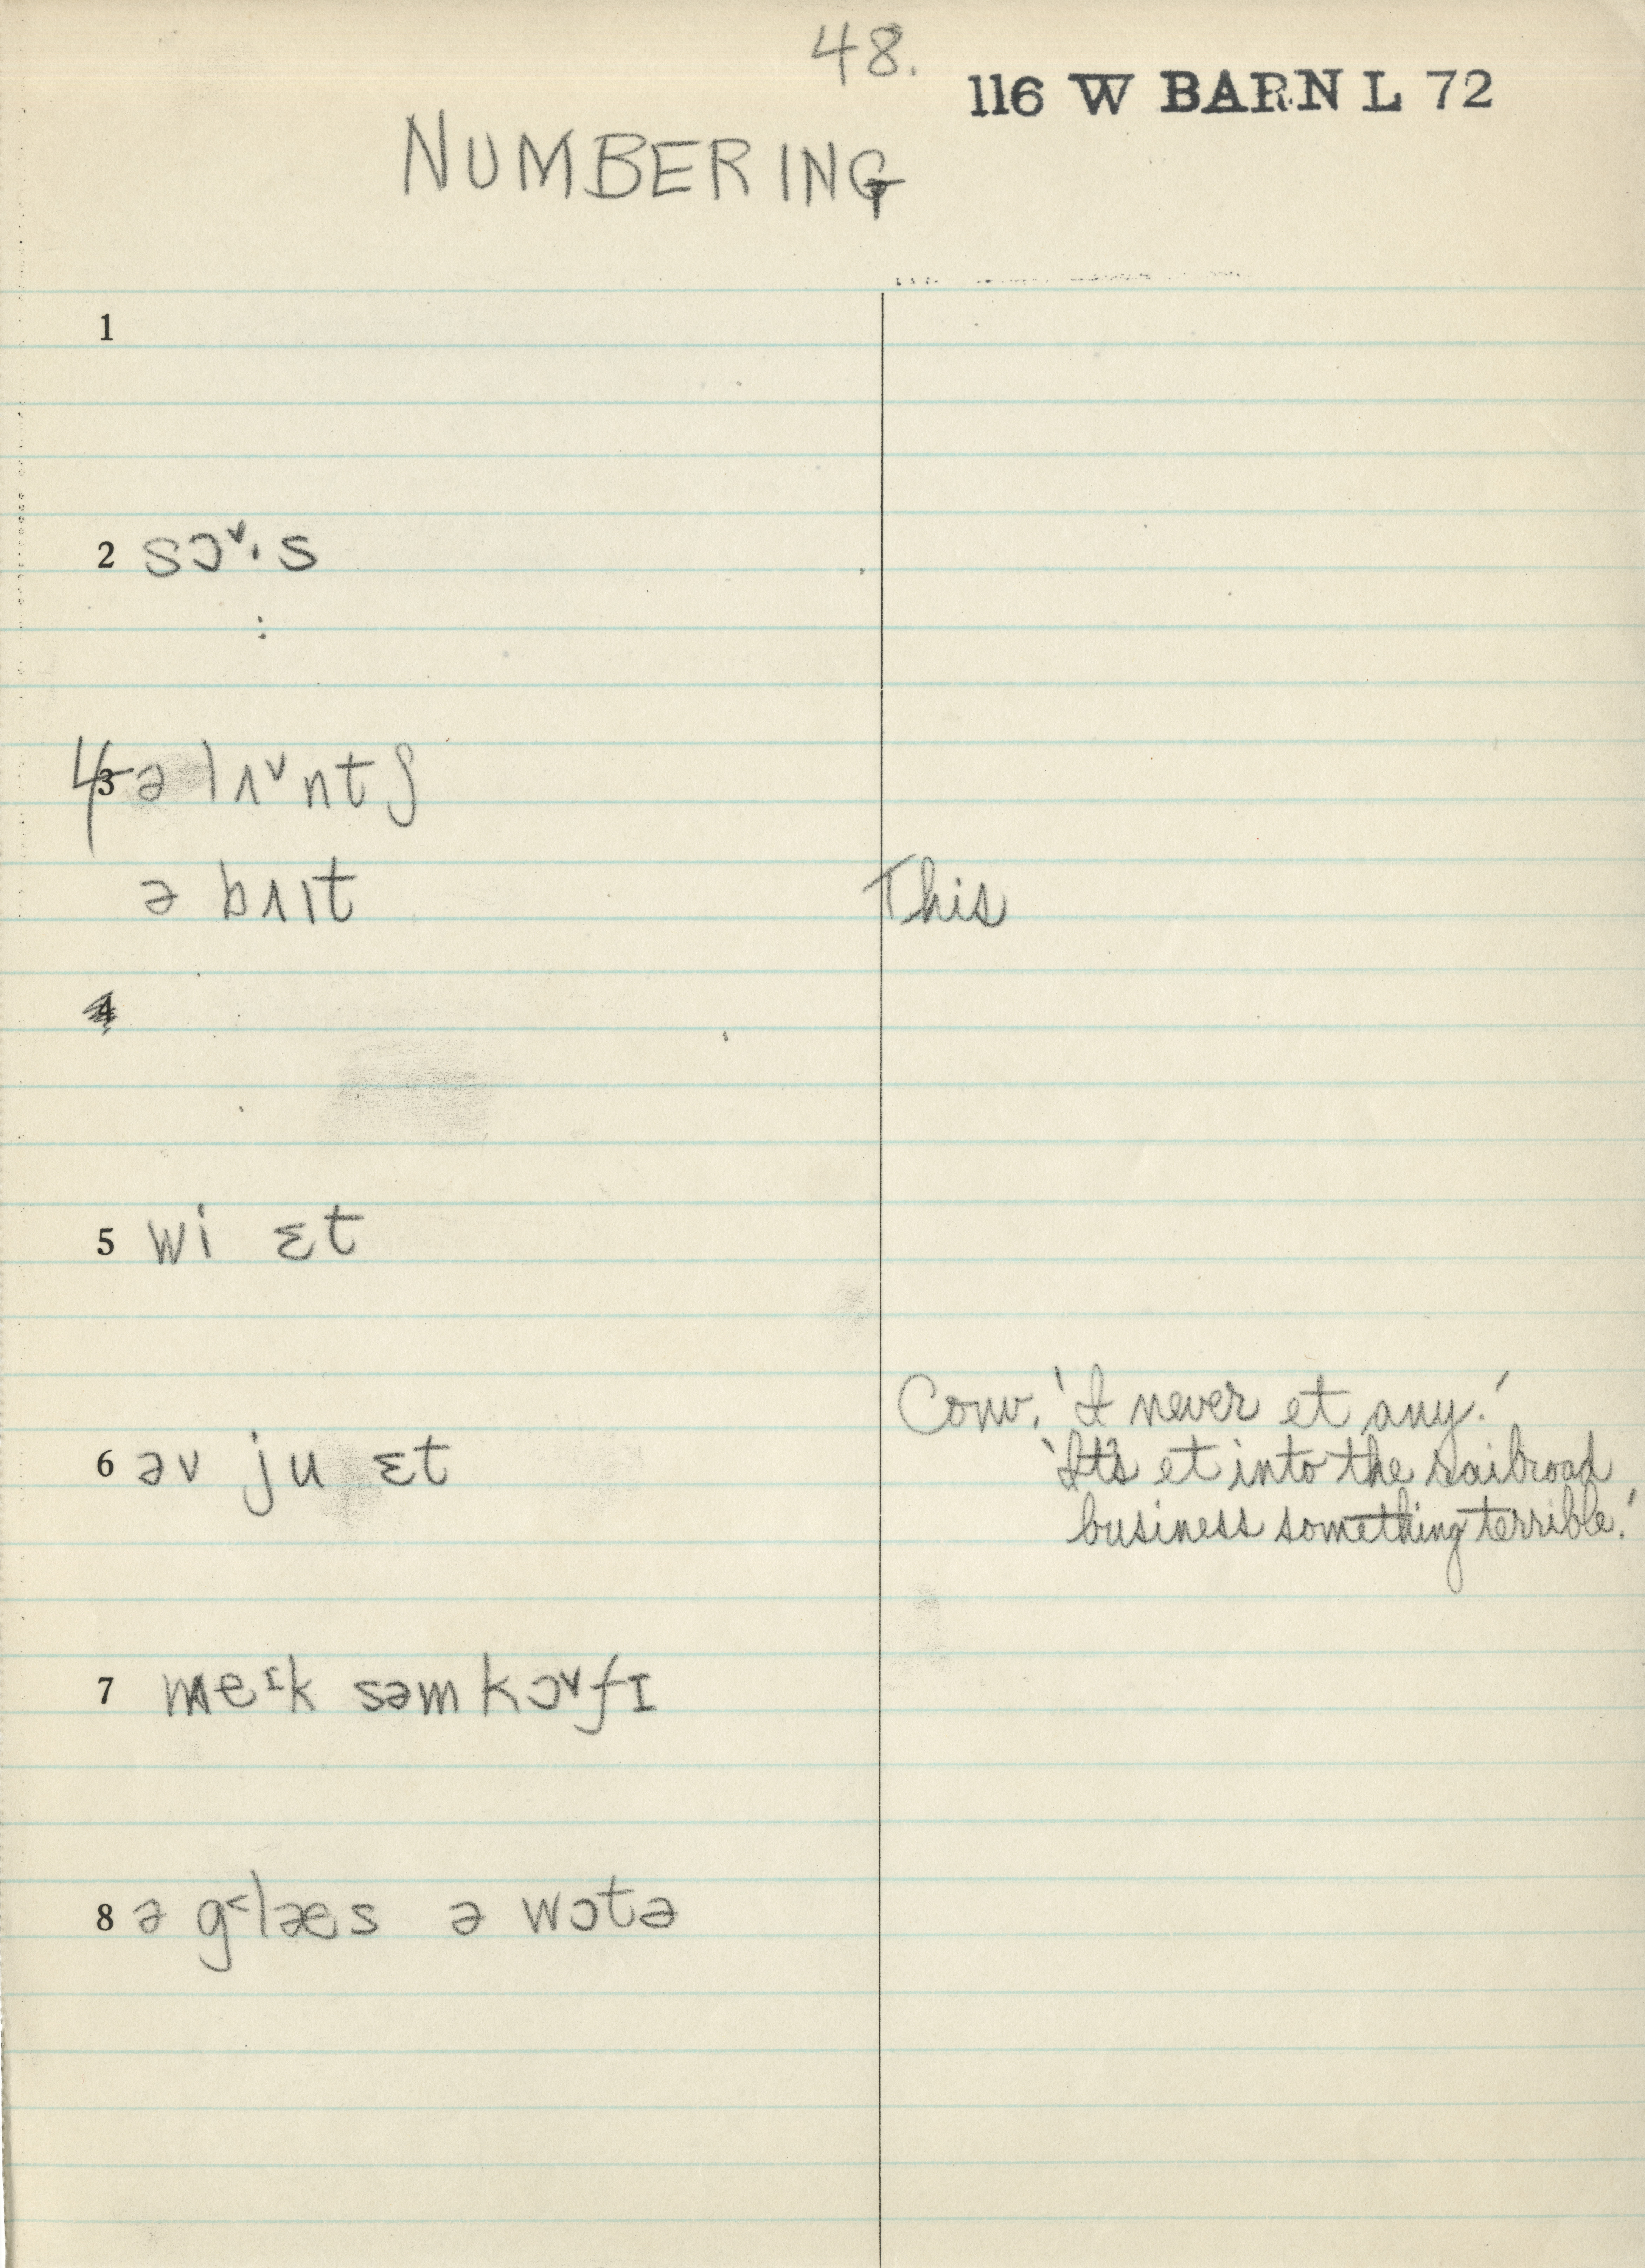 48.
116 W BARN L 72
NUMBERING
1
2 sɔˇ·s
:
4 3 ə lɪˇntʃ
ə bʌɪt This
4
5 wi ɛt
Conv. 'I never et any.'
6 əv ju ɛt 'It's et into the railroad
business something terrible.'
7 meᶦk səm kɔˇfɪ
8 ə g˂læs ə wɔtə